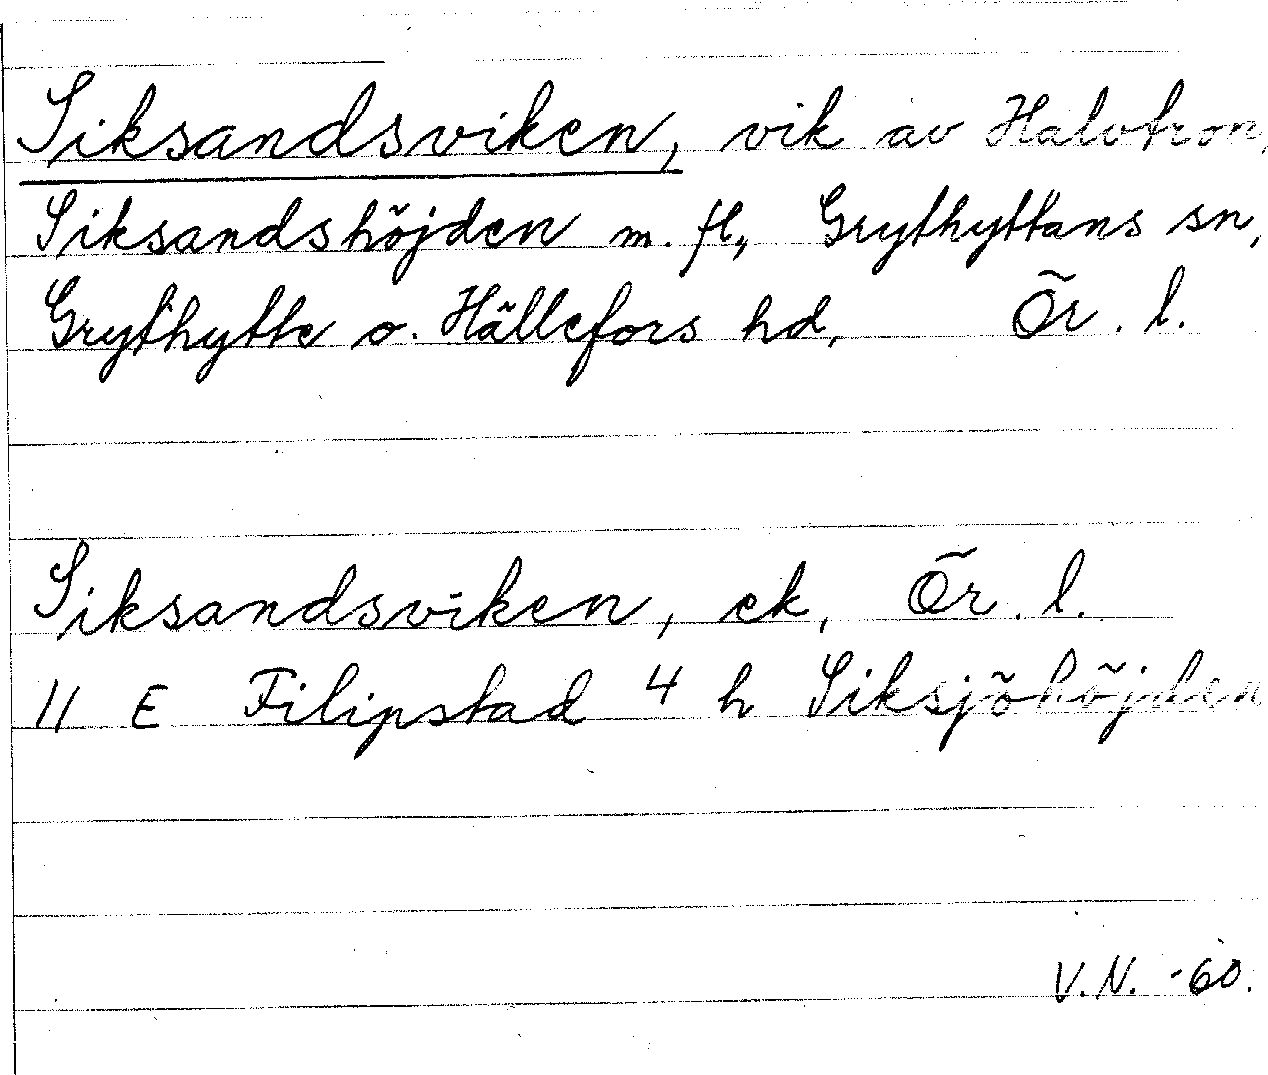 Siksandsviken, vik av Halvtron,
Siksandshöjden m. fl., Grythyttans sn,
Grythytte o. Hällefors hd, Ör. l.
Siksandsviken, ek, Ör. l.
11 E Filipstad 4 h Siksjöhöjden
V.N. -60.